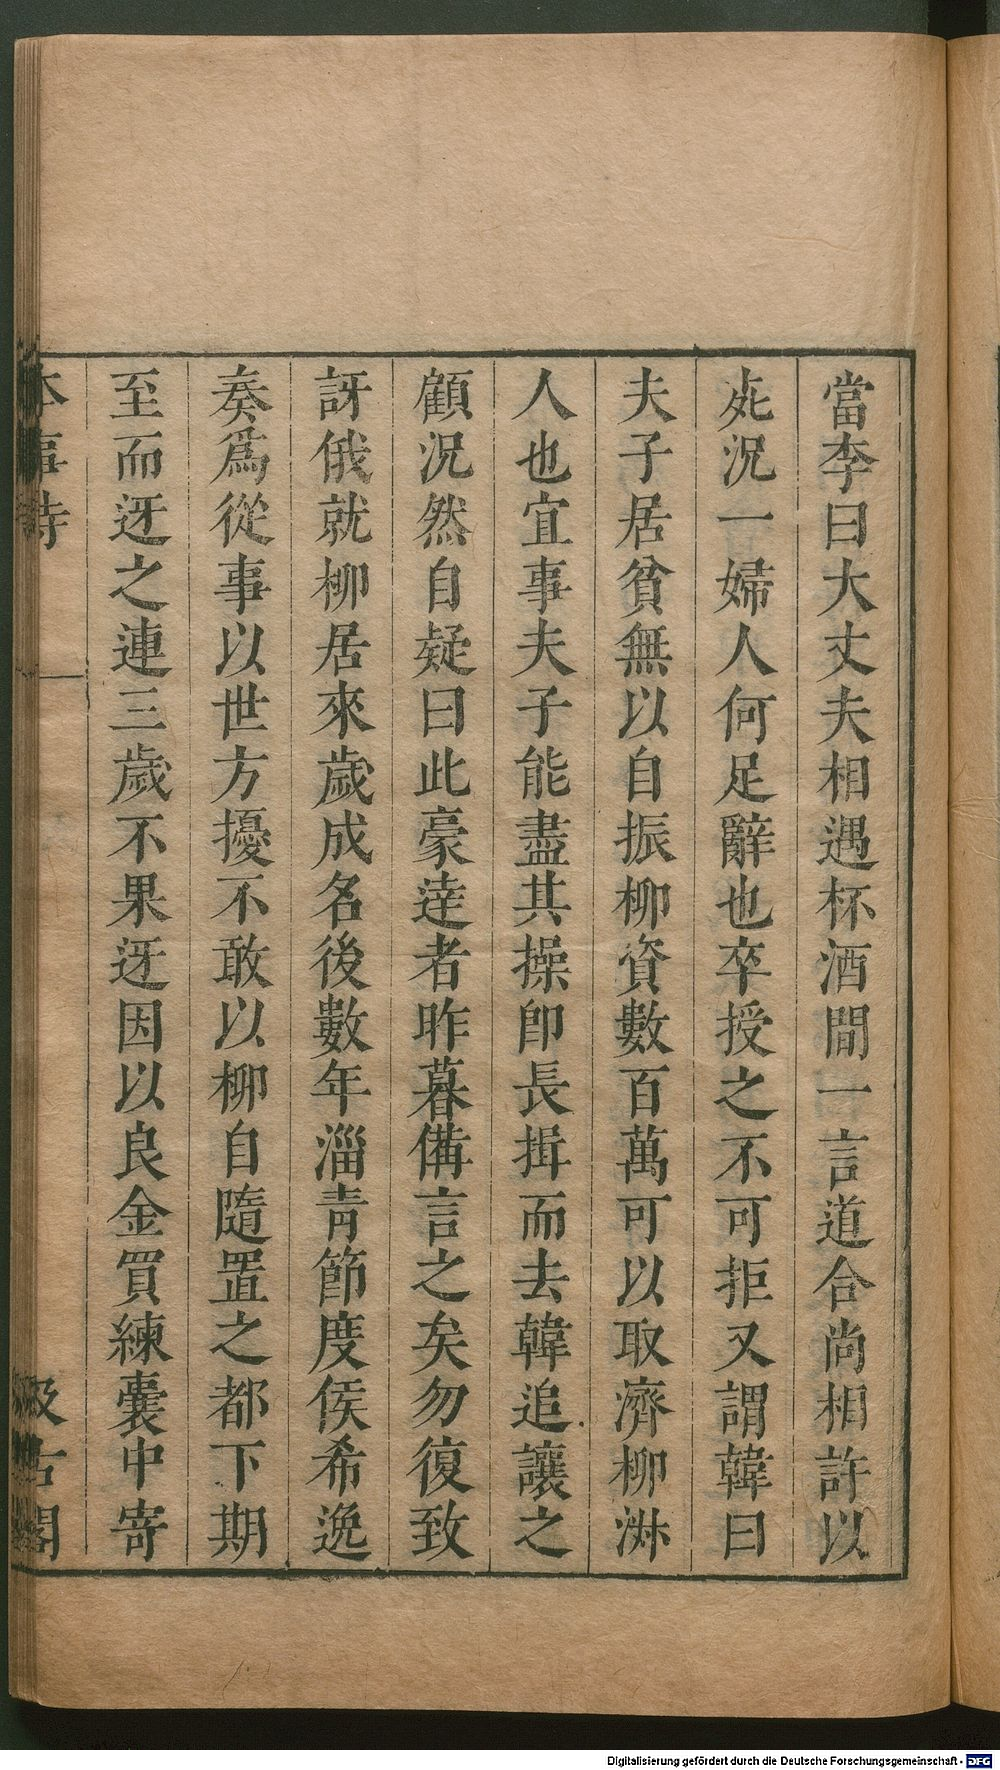 當李曰大丈夫相遇杯酒間一言道合尚相許以
死況一婦人何足辭也卒授之不可拒又謂韓曰
夫子居貧無以自振柳資數百萬可以取濟柳淑
人也宜事夫子能盡其操卽長揖而去韓追讓之
顧況然自疑曰此豪達者昨暮備言之矣勿復致
訝俄就柳居來歲成名後數年淄青節度侯希逸
奏爲從事以世方擾不敢以柳自隨置之都下期
至而迓之連三歲不果迓因以良金買練囊中寄
本事詩
汲古閣
Digitalisierung gefördert durch die Deutsche Forschungsgemeinschaft - DFG